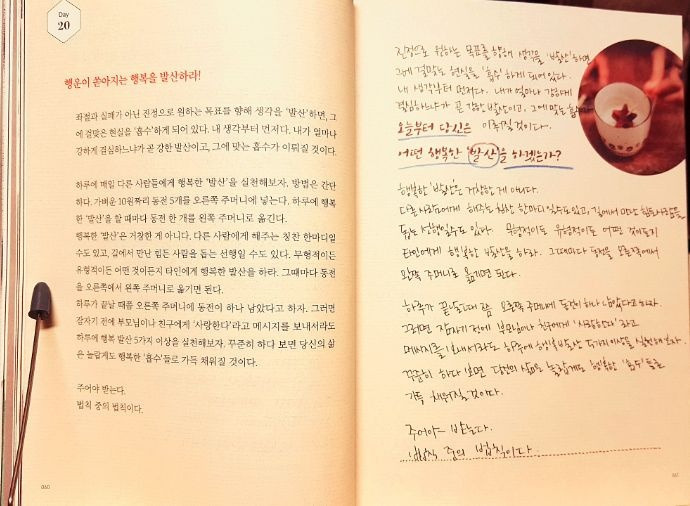 Day
20
행운이 쏟아지는 행복을 발산하라!
좌절과 실패가 아닌 진정으로 원하는 목표를 향해 생각을 '발산'하면, 그
에 걸맞은 현실을 '흡수'하게 되어 있다. 내 생각부터 먼저다. 내가 얼마나
강하게 결심하느냐가 곧 강한 발산이고, 그에 맞는 흡수가 이뤄질 것이다.
하루에 매일 다른 사람들에게 행복한 '발산'을 실천해보자. 방법은 간단
하다. 가벼운 10원짜리 동전 5개를 오른쪽 주머니에 넣는다. 하루에 행복
한 '발산'을 할 때마다 동전 한 개를 왼쪽 주머니로 옮긴다.
행복한 '발산'은 거창한 게 아니다. 다른 사람에게 해주는 칭찬 한마디일
수도 있고, 길에서 만난 힘든 사람을 돕는 선행일 수도 있다. 무형적이든
유형적이든 어떤 것이든지 타인에게 행복한 발산을 하라. 그때마다 동전
을 오른쪽에서 왼쪽 주머니로 옮기면 된다.
하루가 끝날 때쯤 오른쪽 주머니에 동전이 하나 남았다고 하자. 그러면
갑자기 전에 부모님이나 친구에게 '사랑한다'라고 메시지를 보내서라도
하루에 행복 발산 5가지 이상을 실천해보자. 꾸준히 하다 보면 당신의 삶
은 놀랍게도 행복한 '흡수'들로 가득 채워질 것이다.
주어야 받는다.
법칙 중의 법칙이다.
060
진정으로 원하는 목표를 향해 생각을 '발산'하면
그에 걸맞은 현실을 '흡수'하게 되어 있다.
내 생각부터 먼저다. 내가 얼마나 강하게
결심하느냐가 곧 강한 발산이고, 그에 맞는 흡수가
이뤄질 것이다.
오늘부터 당신은
어떤 행복한 '발산'을 하겠는가?
행복한 '발산'은 거창한 게 아니다.
다른 사람에게 해주는 칭찬 한마디일수도 있고, 길에서 만난 힘든 사람을
돕는 선행일수도 있다. 무형적이든 유형적이든 어떤 것이든지
타인에게 행복한 발산을 하라. 그때마다 동전을 오른쪽에서
왼쪽 주머니로 옮기면 된다.
하루가 끝날 때 쯤 오른쪽 주머니에 동전이 하나 남았다고 하자.
그러면 갑자기 전에 부모님이나 친구에게 '사랑한다'라고
메시지를 보내서라도 하루에 행복 발산 5가지 이상을 실천해보자.
꾸준히 하다 보면 당신의 삶은 놀랍게도 행복한 '흡수'들로
가득 채워질 것이다.
주어야 받는다.
법칙 중의 법칙이다.
061